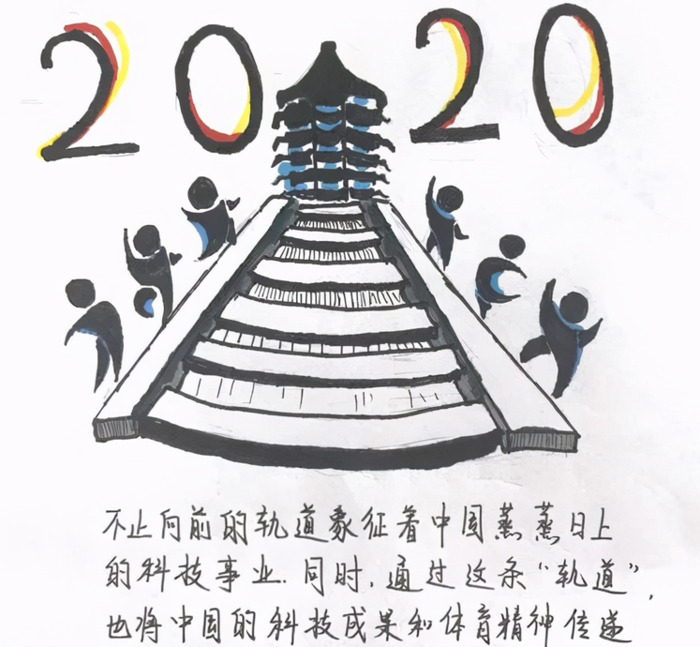 2020
不止向前的轨道象征着中国蒸蒸日上
的科技事业.同时,通过这条“轨道”,
也将中国的科技成果和体育精神传递